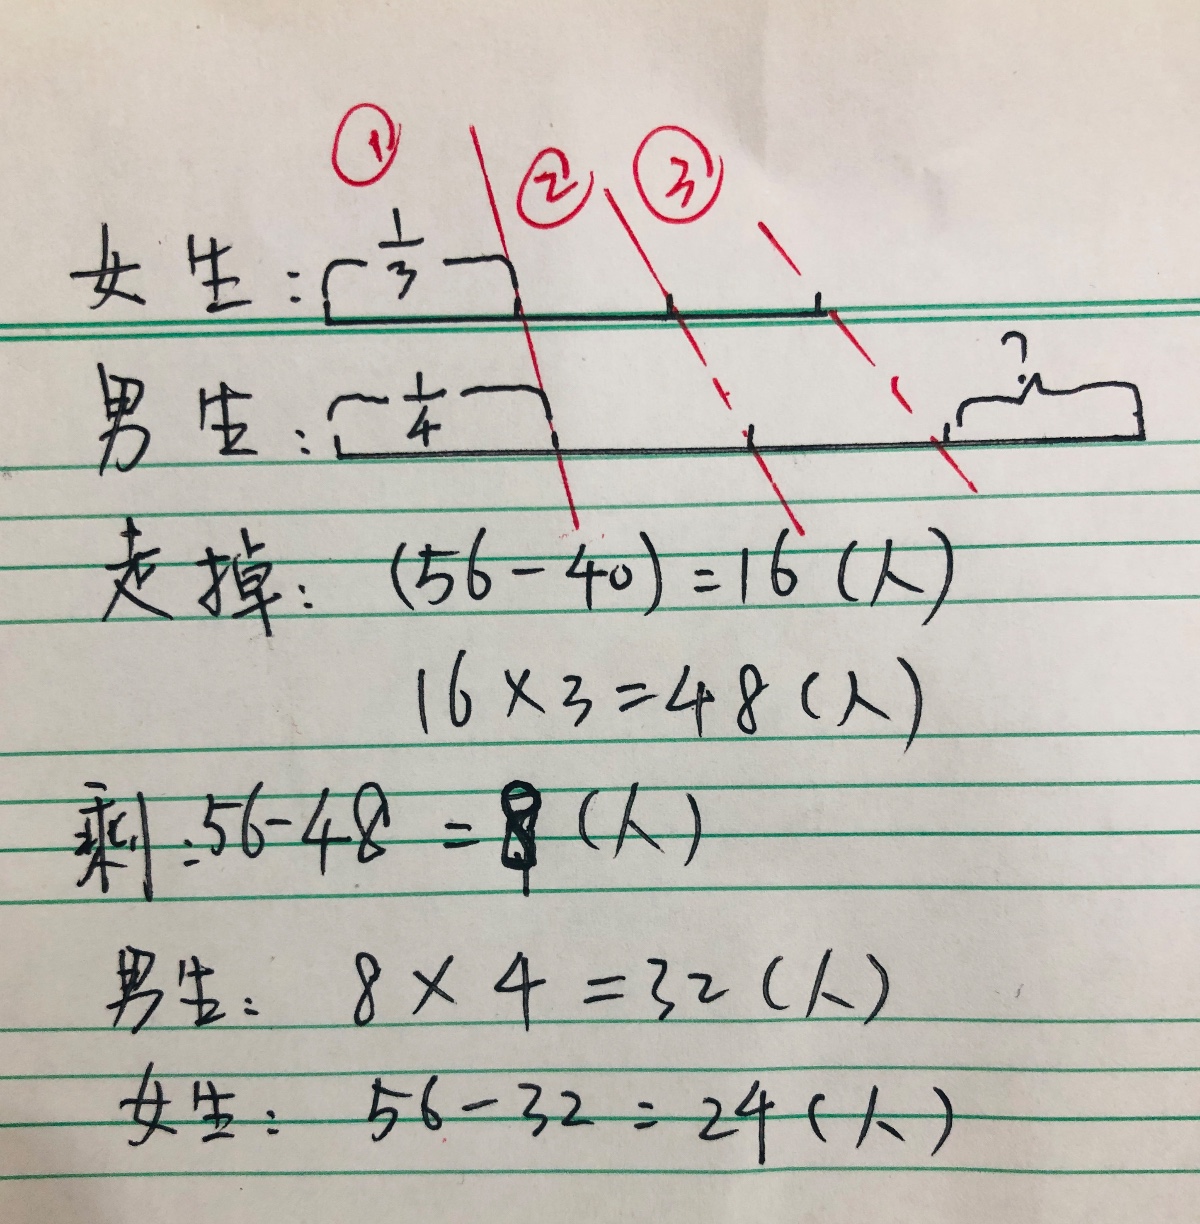 ① ② ③
女生: 1/3
?
男生: 1/4
走掉: (56-40)=16(人)
16×3=48(人)
剩:56-48=8(人)
男生: 8×4=32(人)
女生: 56-32=24(人)